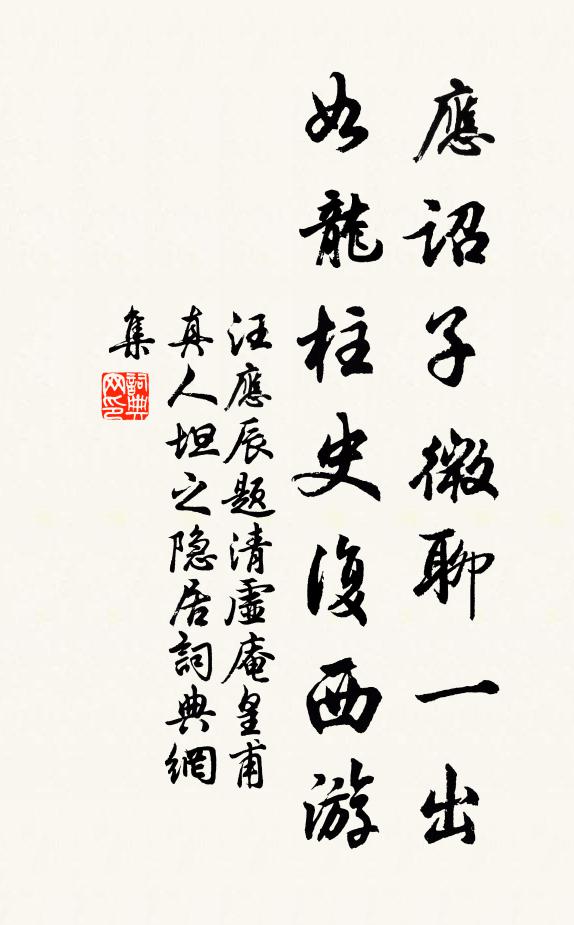 應詔子微聊一出
如龍柱史復西游
汪應辰题清虛庵皇甫
真人坦之隐居詞典網
集
詞典网印